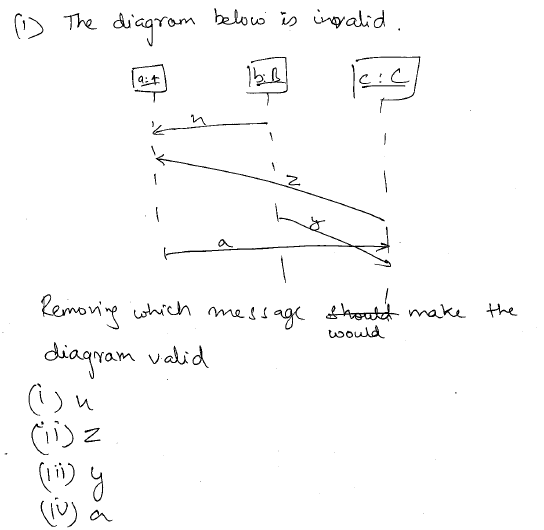 (1) The diagram below is invalid.
a:A b:B c:C
x
z
y
a
Removing which message should make the
would
diagram valid
(i) x
(ii) z
(iii) y
(iv) a